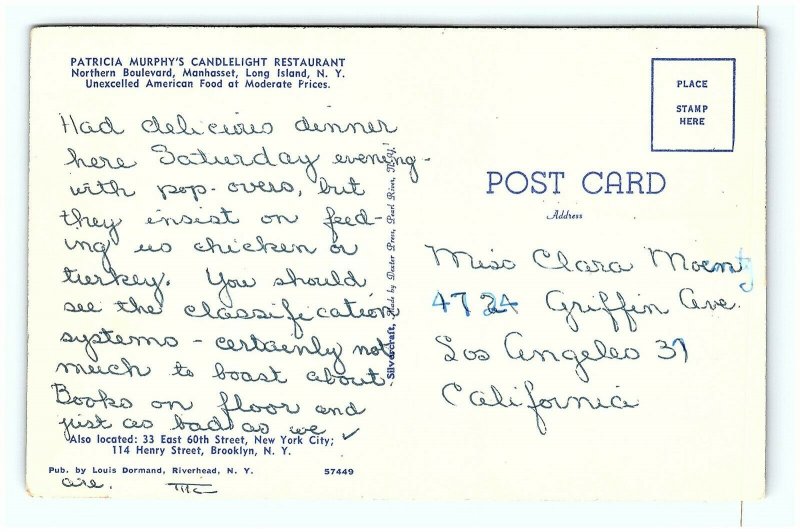 PATRICIA MURPHY'S CANDLELIGHT RESTAURANT
Northern Boulevard, Manhasset, Long Island, N. Y.
Unexcelled American Food at Moderate Prices.
Had delicious dinner
here Saturday evening-
with pop-overs, but
they insist on feed-
ing us chicken or
turkey. You should
see the classification
systems - certainly not
much to boast about.
Books on floor and
just as bad as we
Also located: 33 East 60th Street, New York City;
114 Henry Street, Brooklyn, N. Y.
Pub. by Louis Dormand, Riverhead, N. Y. 57449
are.
Silvercraft, Made by Dexter Press, Pearl River, N. Y.
PLACE
STAMP
HERE
POST CARD
Address
Miss Clara Moentz
4724 Griffin Ave.
Los Angeles 31
California